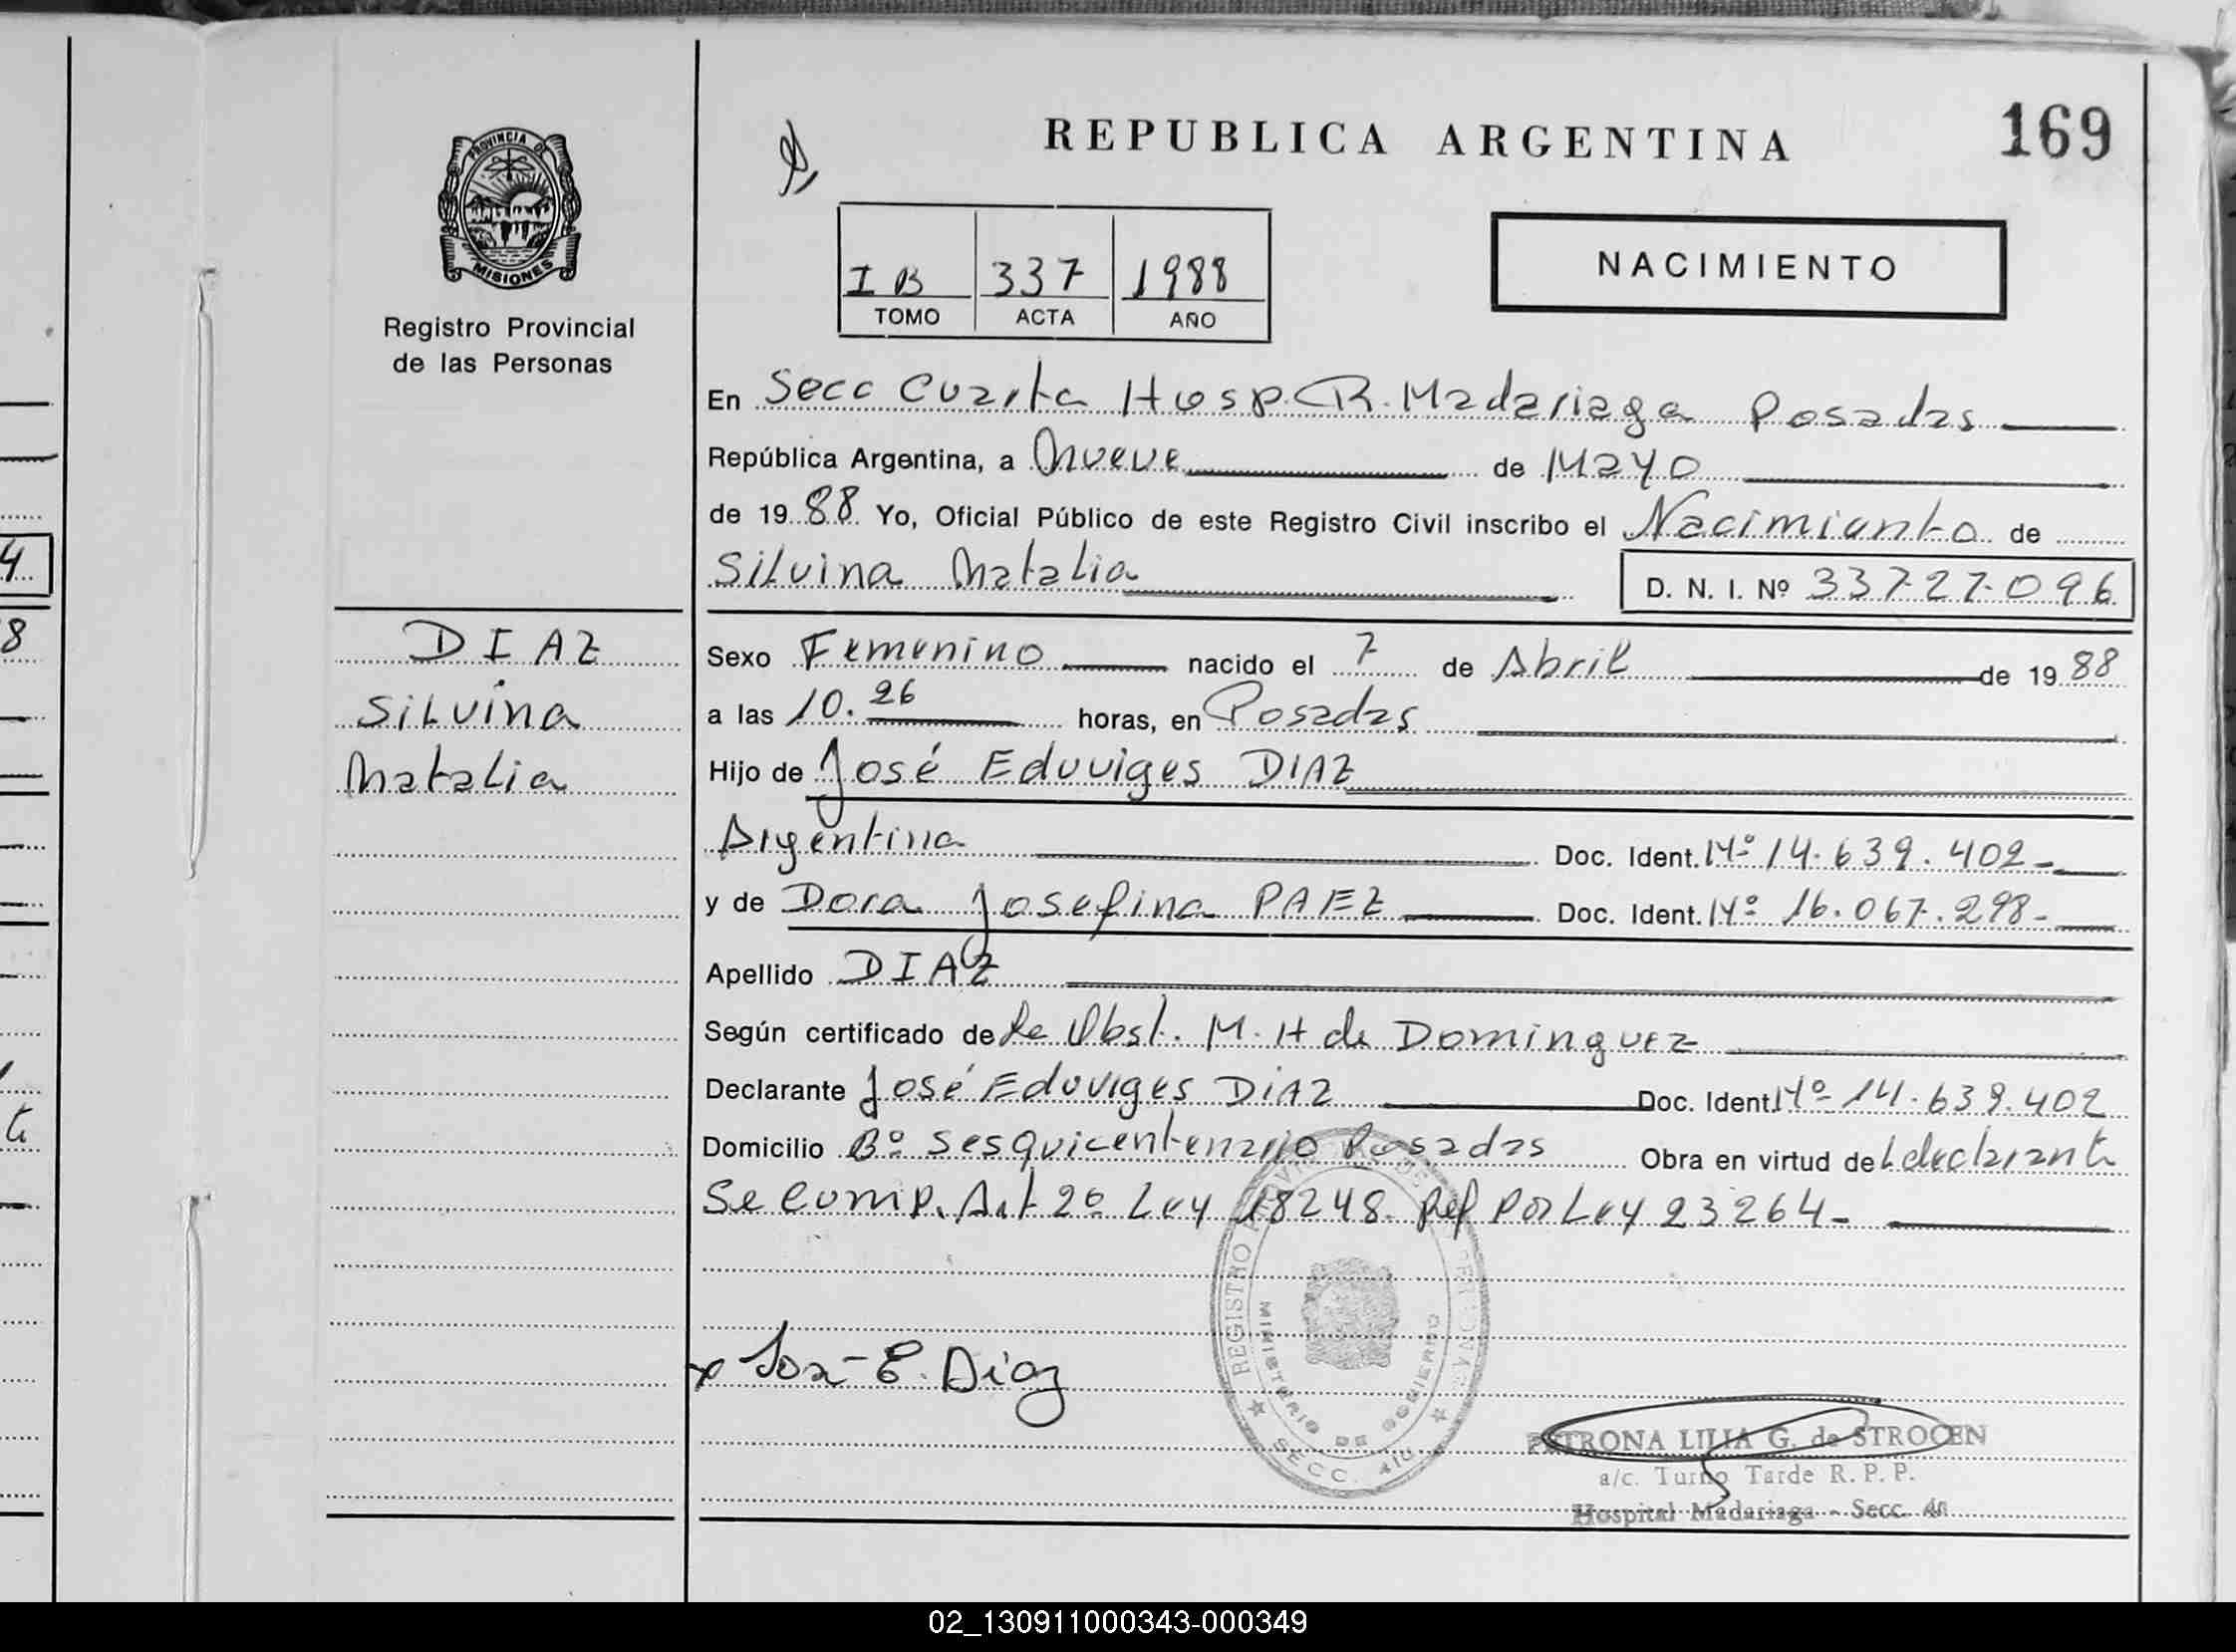 REPUBLICA ARGENTINA
169
PROVINCIA DE MISIONES
Registro Provincial
de las Personas
I B 337 1988
TOMO ACTA AÑO
NACIMIENTO
En Secc Cuarta Hosp. R. Madariaga Posadas
República Argentina, a Nueve de Mayo
de 1988 Yo, Oficial Público de este Registro Civil inscribo el Nacimiento de
Silvina Natalia D. N. I. Nº 33727096
DIAZ
Silvina
Natalia
Sexo Femenino nacido el 7 de Abril de 1988
a las 10.26 horas, en Posadas
Hijo de José Eduviges DIAZ
Argentina Doc. Ident. Nº 14.639.402-
y de Dora Josefina PAEZ Doc. Ident. Nº 16.067.298-
Apellido DIAZ
Según certificado de la Obst. M. H de Dominguez
Declarante José Eduviges DIAZ Doc. Ident. Nº 14.639.402
Domicilio Bº Sesquicentenario Posadas Obra en virtud del declarante
Se Comp. Art 2º Ley 18248. Ref por Ley 23264-
REGISTRO
MINISTERIO DE GOBIERNO
SECC. 4
E. Diaz
PETRONA LILIA G. de STROCEN
a/c. Turno Tarde R. P. P.
Hospital Madariaga - Secc. 4a
4
8
02_130911000343-000349